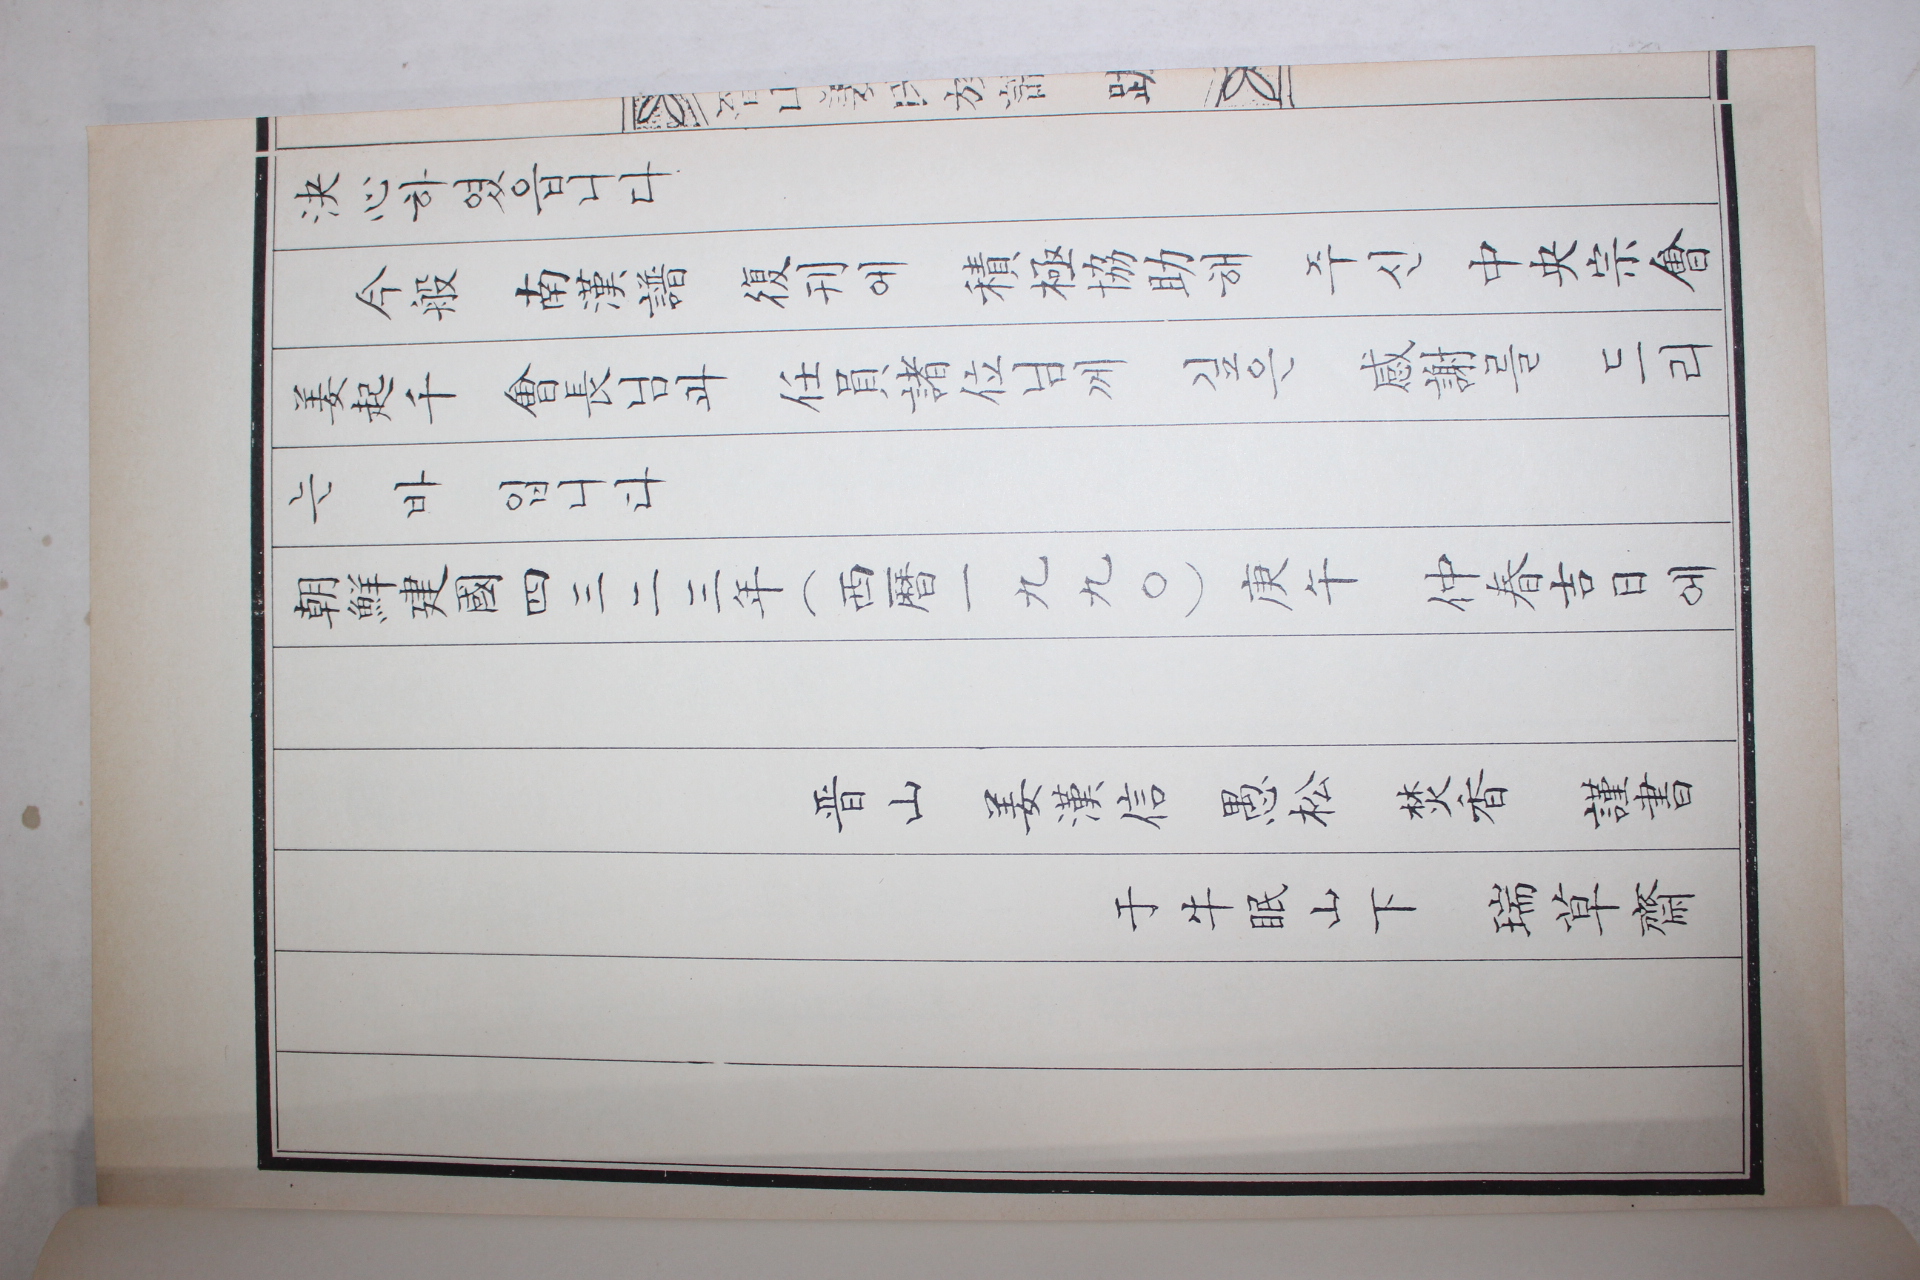 跋
決心하였읍니다
今般 南漢譜 復刊에 積極協助해 주신 中央宗會
姜起千 會長님과 任員諸位님께 깊은 感謝를 드리
는 바 입니다
朝鮮建國四三二三年(西曆一九九〇)庚午 仲春吉日에
晋山 姜漢信 愚松 焚香 謹書
于牛眠山下 瑞草齋